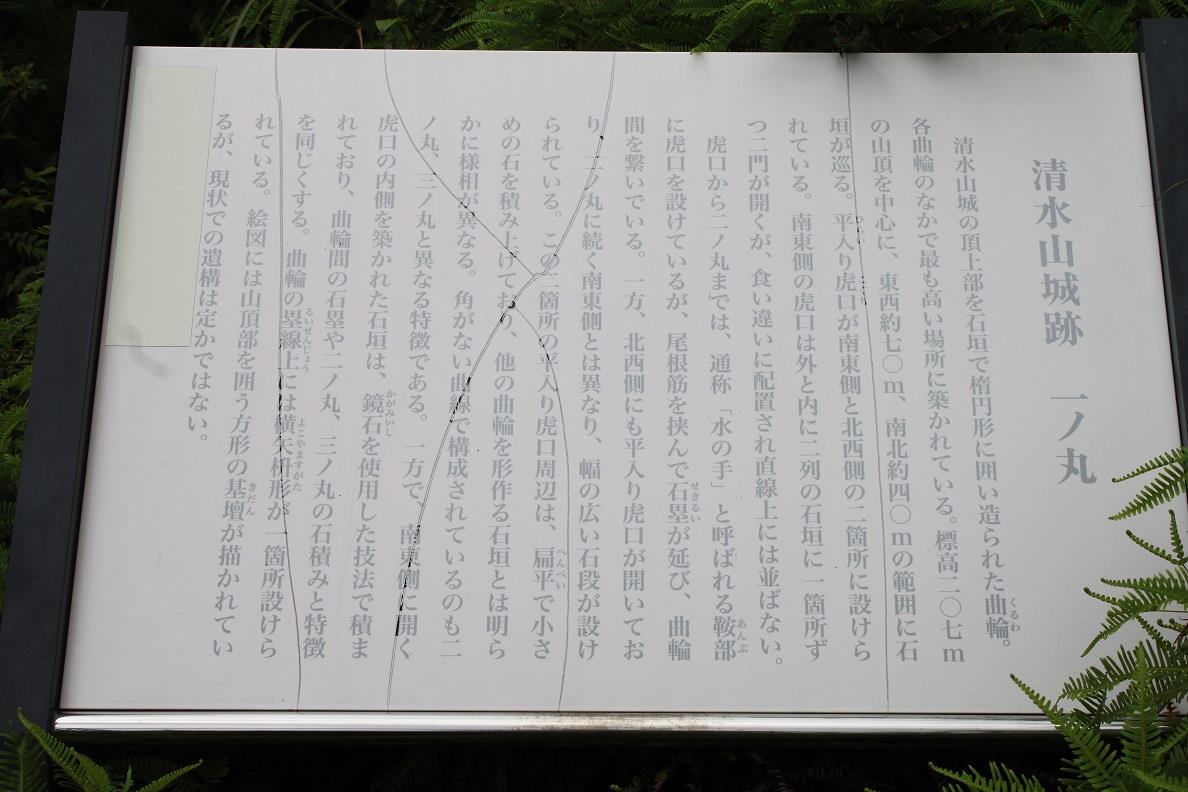 清水山城跡 一ノ丸
清水山城の頂上部を石垣で楕円形に囲い造られた曲輪。
各曲輪のなかで最も高い場所に築かれている。標高二〇七m
の山頂を中心に、東西約七〇m、南北約四〇mの範囲に石
垣が巡る。平入り虎口が南東側と北西側の二箇所に設けら
れている。南東側の虎口は外と内に二列の石垣に一箇所ず
つ二門が開くが、食い違いに配置され直線上には並ばない。
虎口から二ノ丸までは、通称「水の手」と呼ばれる鞍部
に虎口を設けているが、尾根筋を挟んで石塁が延び、曲輪
間を繋いでいる。一方、北西側にも平入り虎口が開いてお
り、二ノ丸に続く南東側とは異なり、幅の広い石段が設け
られている。この二箇所の平入り虎口周辺は、扁平で小さ
めの石を積み上げており、他の曲輪を形作る石垣とは明ら
かに様相が異なる。角がない曲線で構成されているのも二
ノ丸、三ノ丸と異なる特徴である。一方で、南東側に開く
虎口の内側を築かれた石垣は、鏡石を使用した技法で積ま
れており、曲輪間の石塁や二ノ丸、三ノ丸の石積みと特徴
を同じくする。曲輪の塁線上には横矢枡形が一箇所設けら
れている。絵図には山頂部を囲う方形の基壇が描かれてい
るが、現状での遺構は定かではない。